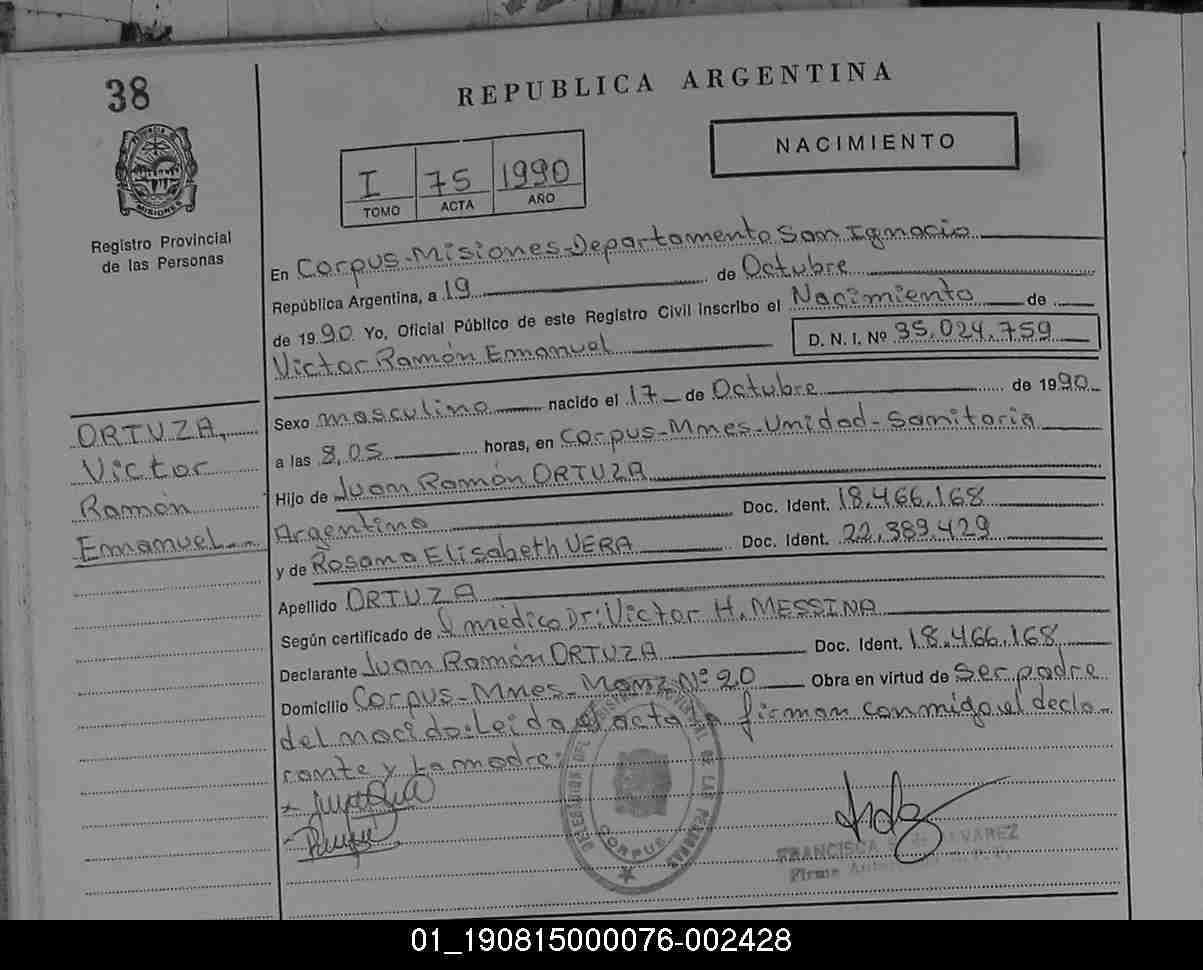 38
REPUBLICA ARGENTINA
PROVINCIA DE
MISIONES
NACIMIENTO
I 75 1990
TOMO ACTA AÑO
Registro Provincial
de las Personas
En Corpus-Misiones-Departamento San Ignacio
República Argentina, a 19 de Octubre
de 1990 Yo, Oficial Público de este Registro Civil inscribo el Nacimiento de
Victor Ramón Emanuel D. N. I. Nº 35.024.759
Sexo masculino nacido el 17 de Octubre de 1990
a las 8,05 horas, en Corpus-Mnes-Unidad-Sanitaria
Hijo de Juan Ramón ORTUZA
Argentino Doc. Ident. 18.466.168
y de Rosana Elisabeth VERA Doc. Ident. 22.389.429
Apellido ORTUZA
Según certificado de médico Dr: Victor H. MESSINA
Declarante Juan Ramón ORTUZA Doc. Ident. 18.466.168
Domicilio Corpus-Mnes-Manz Nº 20 Obra en virtud de Ser padre
del nacido. Leida el acta la firman conmigo el decla-
rante y la madre:
ORTUZA,
Victor
Ramón
Emanuel
DELEGACION DEL REGISTRO PROVINCIAL DE LAS PERSONAS
CORPUS
FRANCISCA ALVAREZ
Firma
01_190815000076-002428